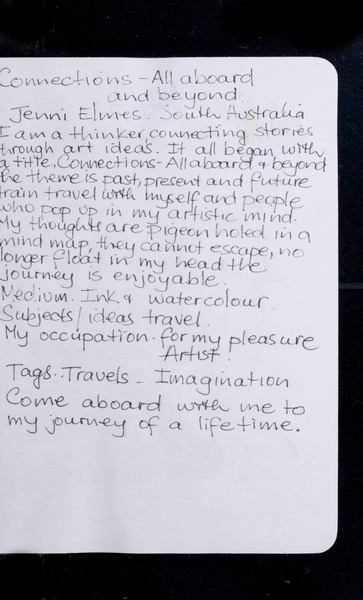 Connections - All aboard
and beyond.
Jenni Elmes. South Australia
I am a thinker, connecting stories
through art ideas. It all began with
a title, Connections - All aboard & beyond
the theme is past, present and future
train travel with myself and people
who pop up in my artistic mind.
My thoughts are pigeon holed in a
mind map, they cannot escape, no
longer float in my head the
journey is enjoyable.
Medium. Ink & watercolour.
Subjects/ideas travel.
My occupation. for my pleasure
Artist.
Tags. Travels - Imagination
Come aboard with me to
my journey of a lifetime.